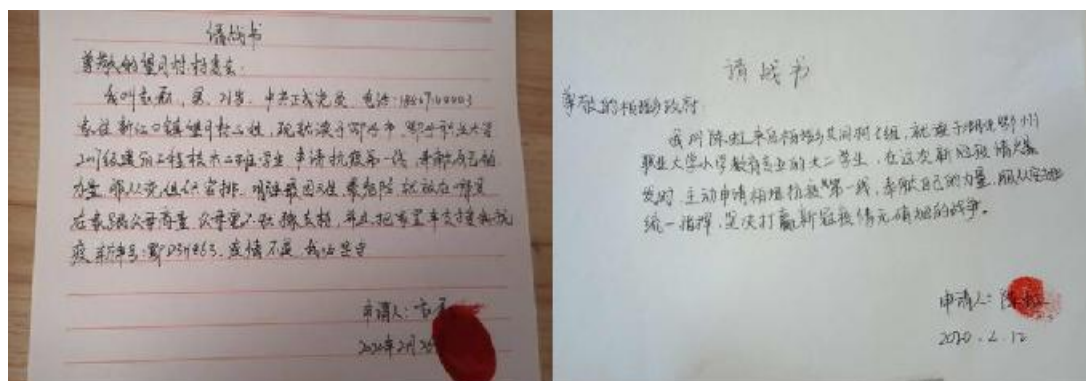 请战书
尊敬的望月村村委会：
我叫，男，21岁，中共正式党员，电话：
家住新江口镇望月村二组，现就读于鄂州市，鄂州职业大学
级建筑工程技术二班学生，申请抗疫第一线，奉献自己的
力量，服从党组织安排。哪里最困难，最危险就放在哪里
在家跟父母商量，父母更不犹豫支持，并且把家里车支援抗
疫，车牌号：鄂，疫情不退，我必坚守
申请人：
2020年2月
请战书
尊敬的乡政府：
我叫陈虹来自乡共同村七组，就读于湖北鄂州
职业大学小学教育专业的大二学生，在这次新冠疫情爆
发时，主动申请抗疫第一线，奉献自己的力量，服从安排
统一指挥，坚决打赢新冠疫情无硝烟的战争。
申请人：陈虹
2020.2.12